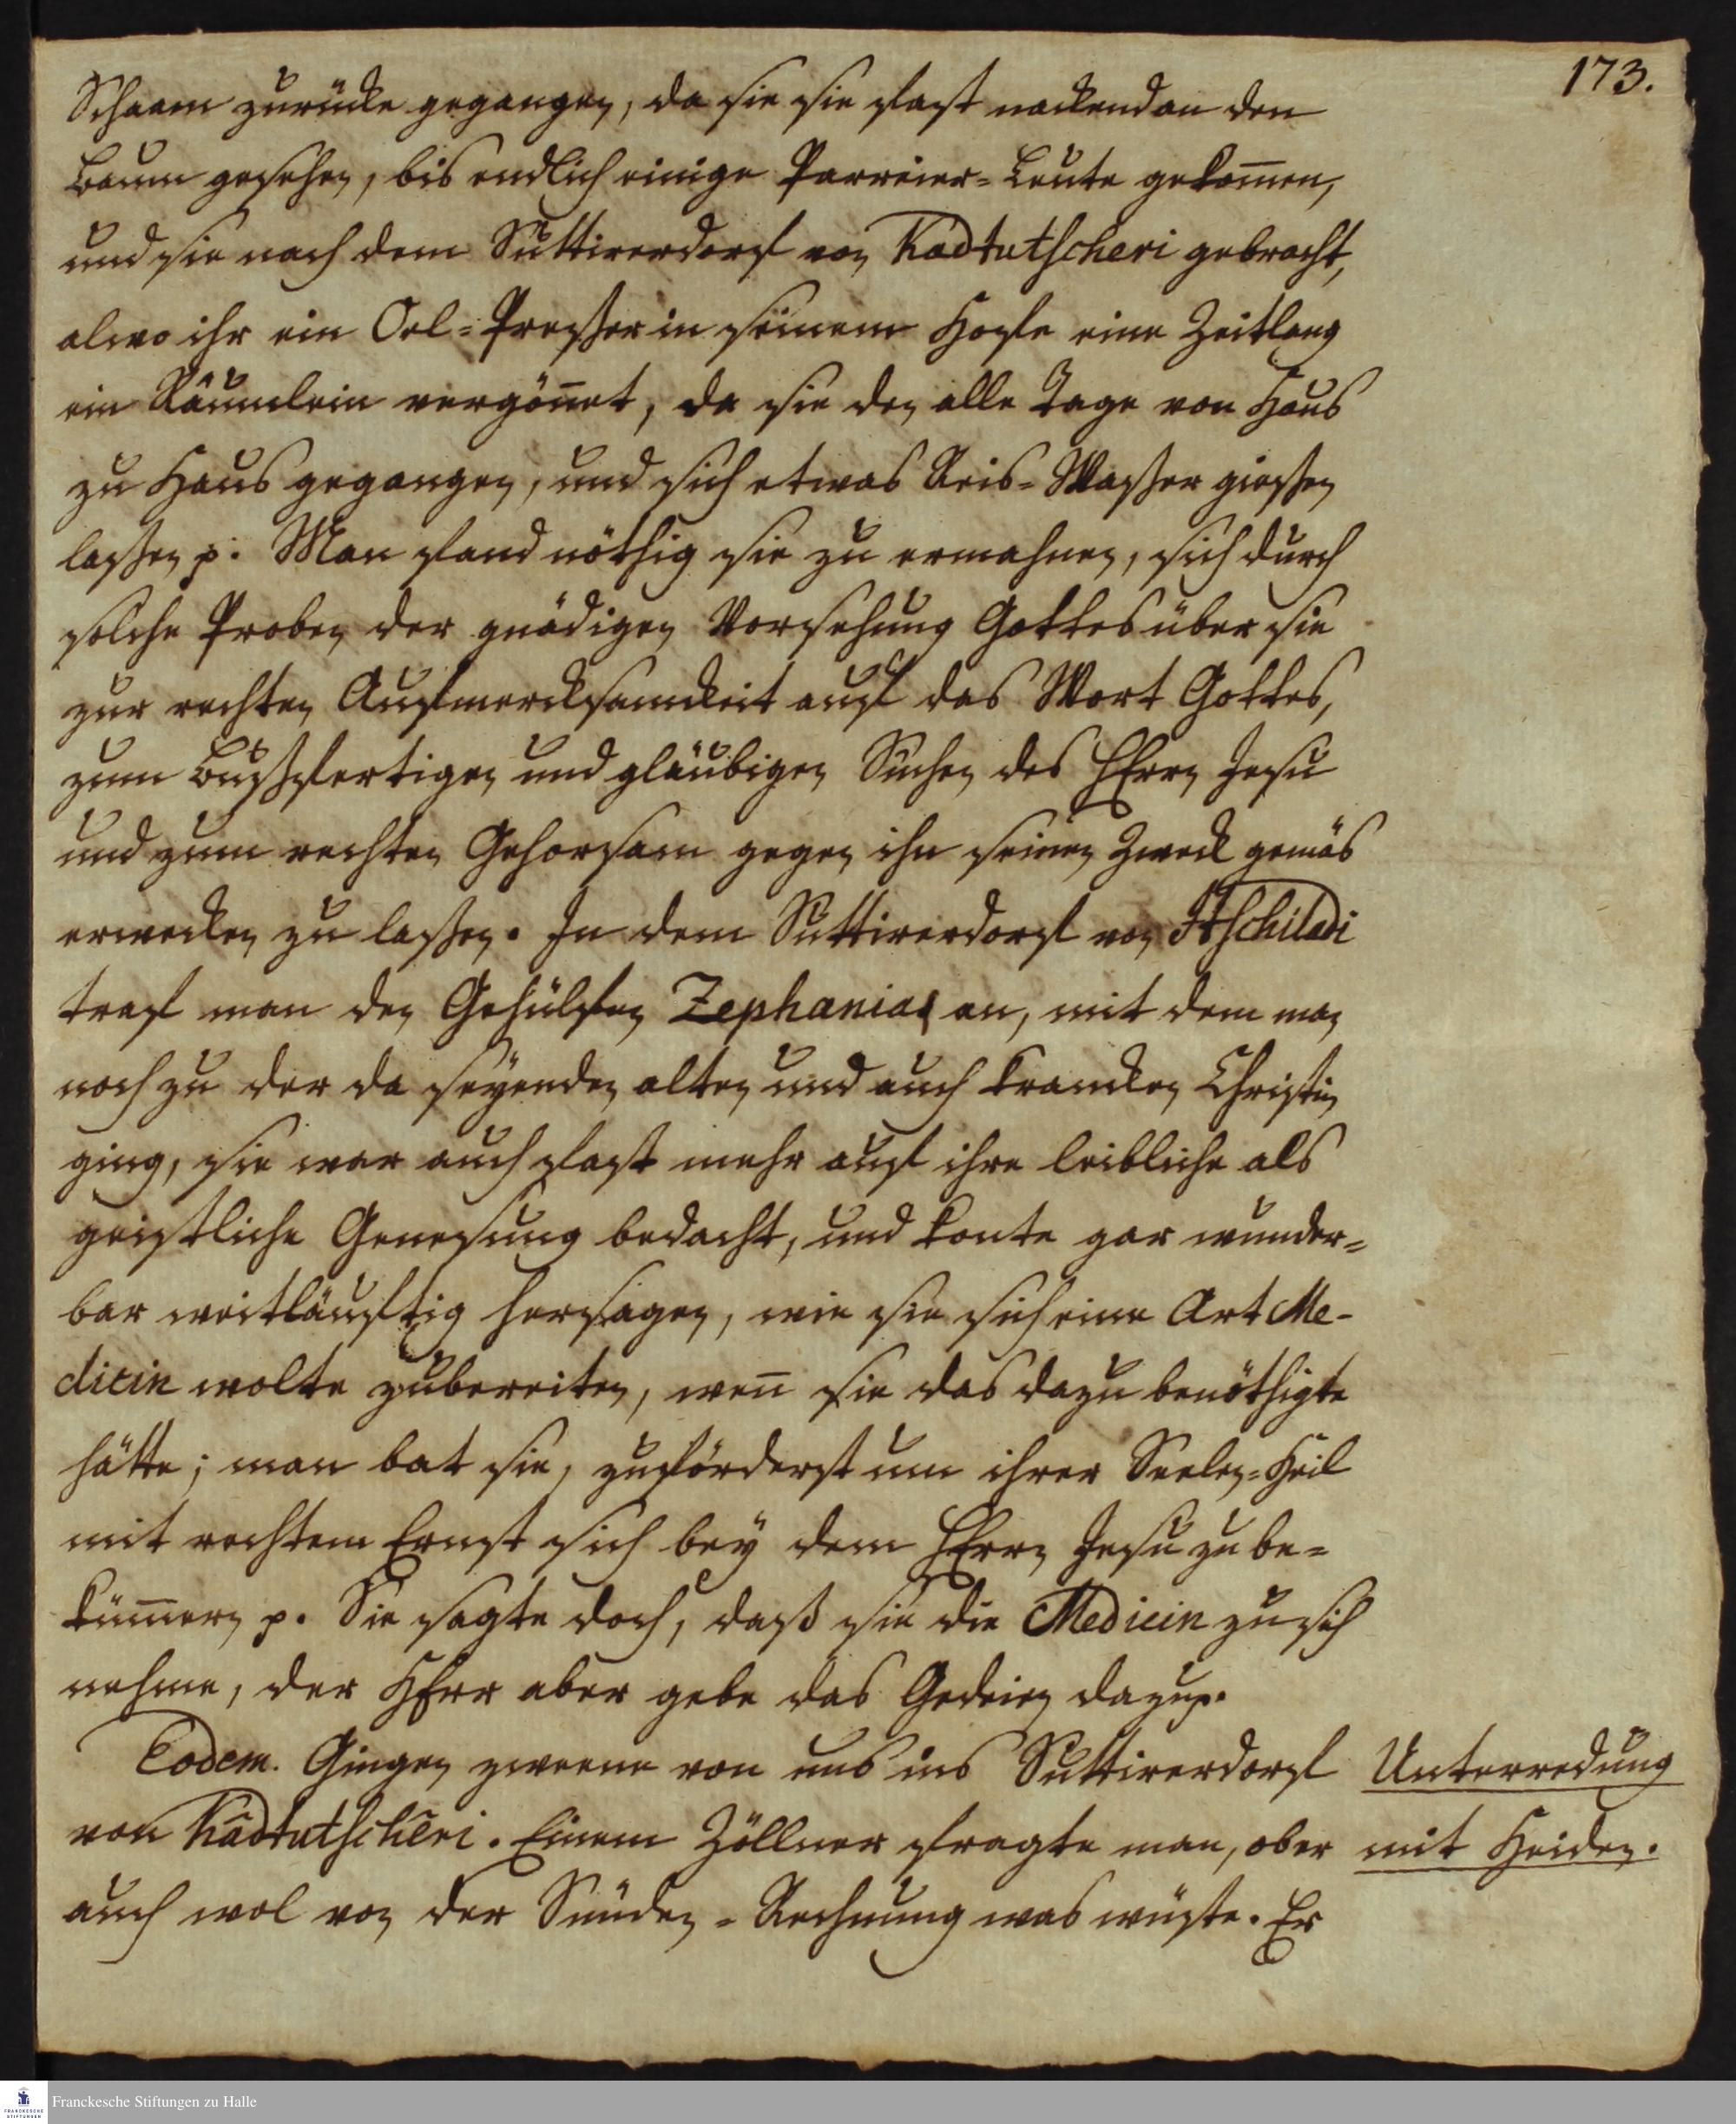 173.
Schaam zurücke gegangen, da sie sie fast nackend an den
Baum gesehen, bis endlich einige Parreier-Leute gekom̅en,
und sie nach dem Suttirerdorf von Kadtutscheri gebracht,
alwo ihr ein Oel-Presser in seinem Hofe eine Zeitlang
ein Räumlein vergön̅et, da sie den alle Tage von Haus
zu Haus gegangen, und sich etwas Reis-Wasser giessen
lassen p. Man fand nöthig sie zu ermahnen, sich durch
solche Proben der gnädigen Vorsehung Gottes über sie
zur rechten Aufmercksamckeit auf das Wort Gottes,
zum bußfertigen und gläubigen Suchen des HErrn Jesu
und zum rechten Gehorsam gegen ihn seinen Zweck gemäs
erwecken zu lassen. In dem Suttirerdorf von Itschiladi
traf man den Gehülfen Zephanias an, mit dem man
noch zu der da seyenden alten und auch krancken Christin
ging, sie war auch fast mehr auf ihre leibliche als
geistliche Genesung bedacht, und konte gar wunder-
bar weitläuftig hersagen, wie sie sich eine Art Me-
dicin wolte zubereiten, wen̅ sie das dazu benöthigte
hätte; man bat sie, zuförderst um ihrer Seelen-Heil
mit rechtem Ernst sich bey dem HErrn Jesu zu be-
küm̅ern p. Sie sagte doch, daß sie die Medicin zu sich
nehme, der HErr aber gebe das Gedeien dazu p.
Eodem. Gingen zweene von uns ins Suttirerdorf
von Kâdtutschêri. Einem Zöllner fragte man, ob er
auch wol von der Sünden-Rechnung was wüste. Er
Unterredung
mit Heiden.
Franckesche Stiftungen zu Halle
FRANCKESCHE
STIFTUNGEN